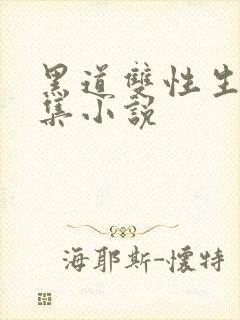 黑道雙性生
集小說
海耶斯-懷特